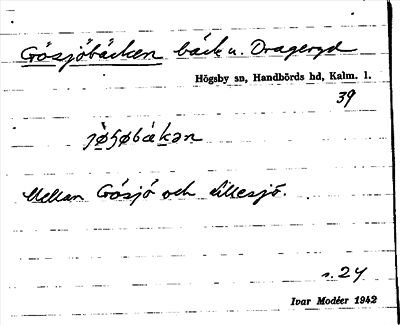 Gösjöbäcken bäck u. Drageryd
Högsby sn, Handbörds hd, Kalm. l.
39
jø̀ʃøbækən
Mellan Gösjö och Lillesjö.
s. 24
Ivar Modéer 1942